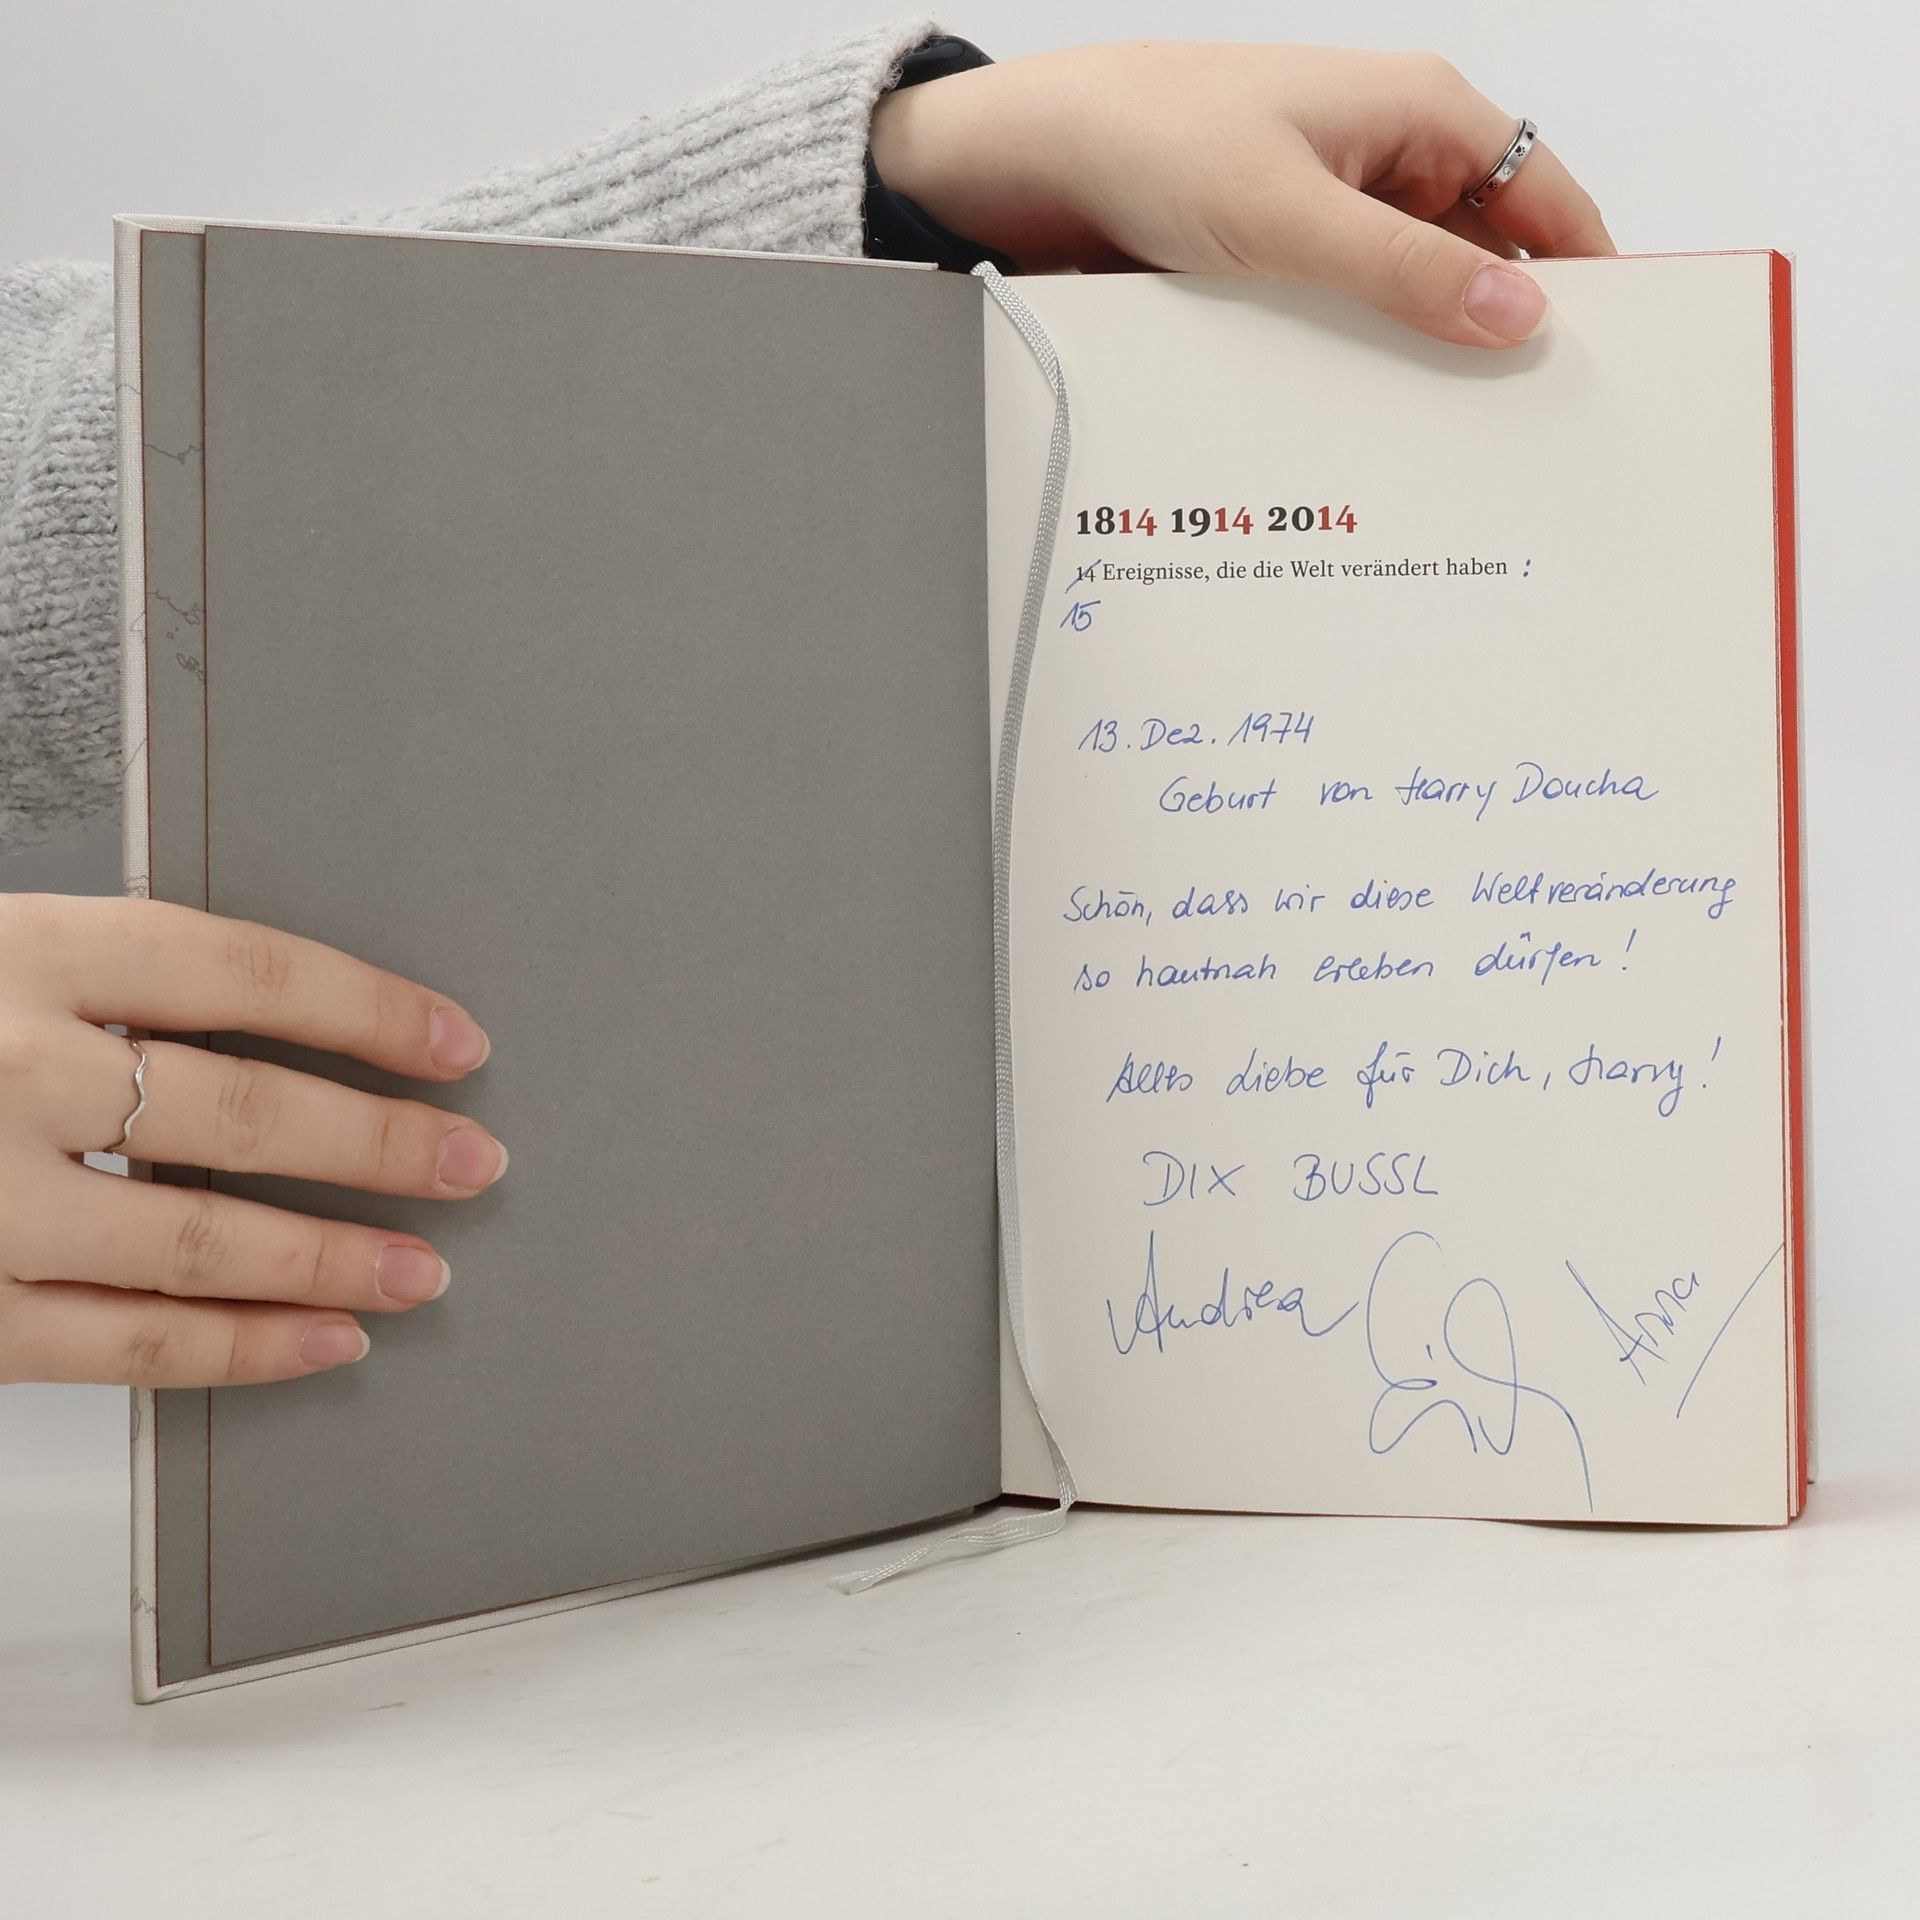 1814 1914 2014
14 Ereignisse, die die Welt verändert haben :
15
13. Dez. 1974
Geburt von Harry Doucha
Schön, dass wir diese Weltveränderung
so hautnah erleben dürfen!
Alles Liebe für Dich, Harry!
DIX BUSSL
Andrea
Anna